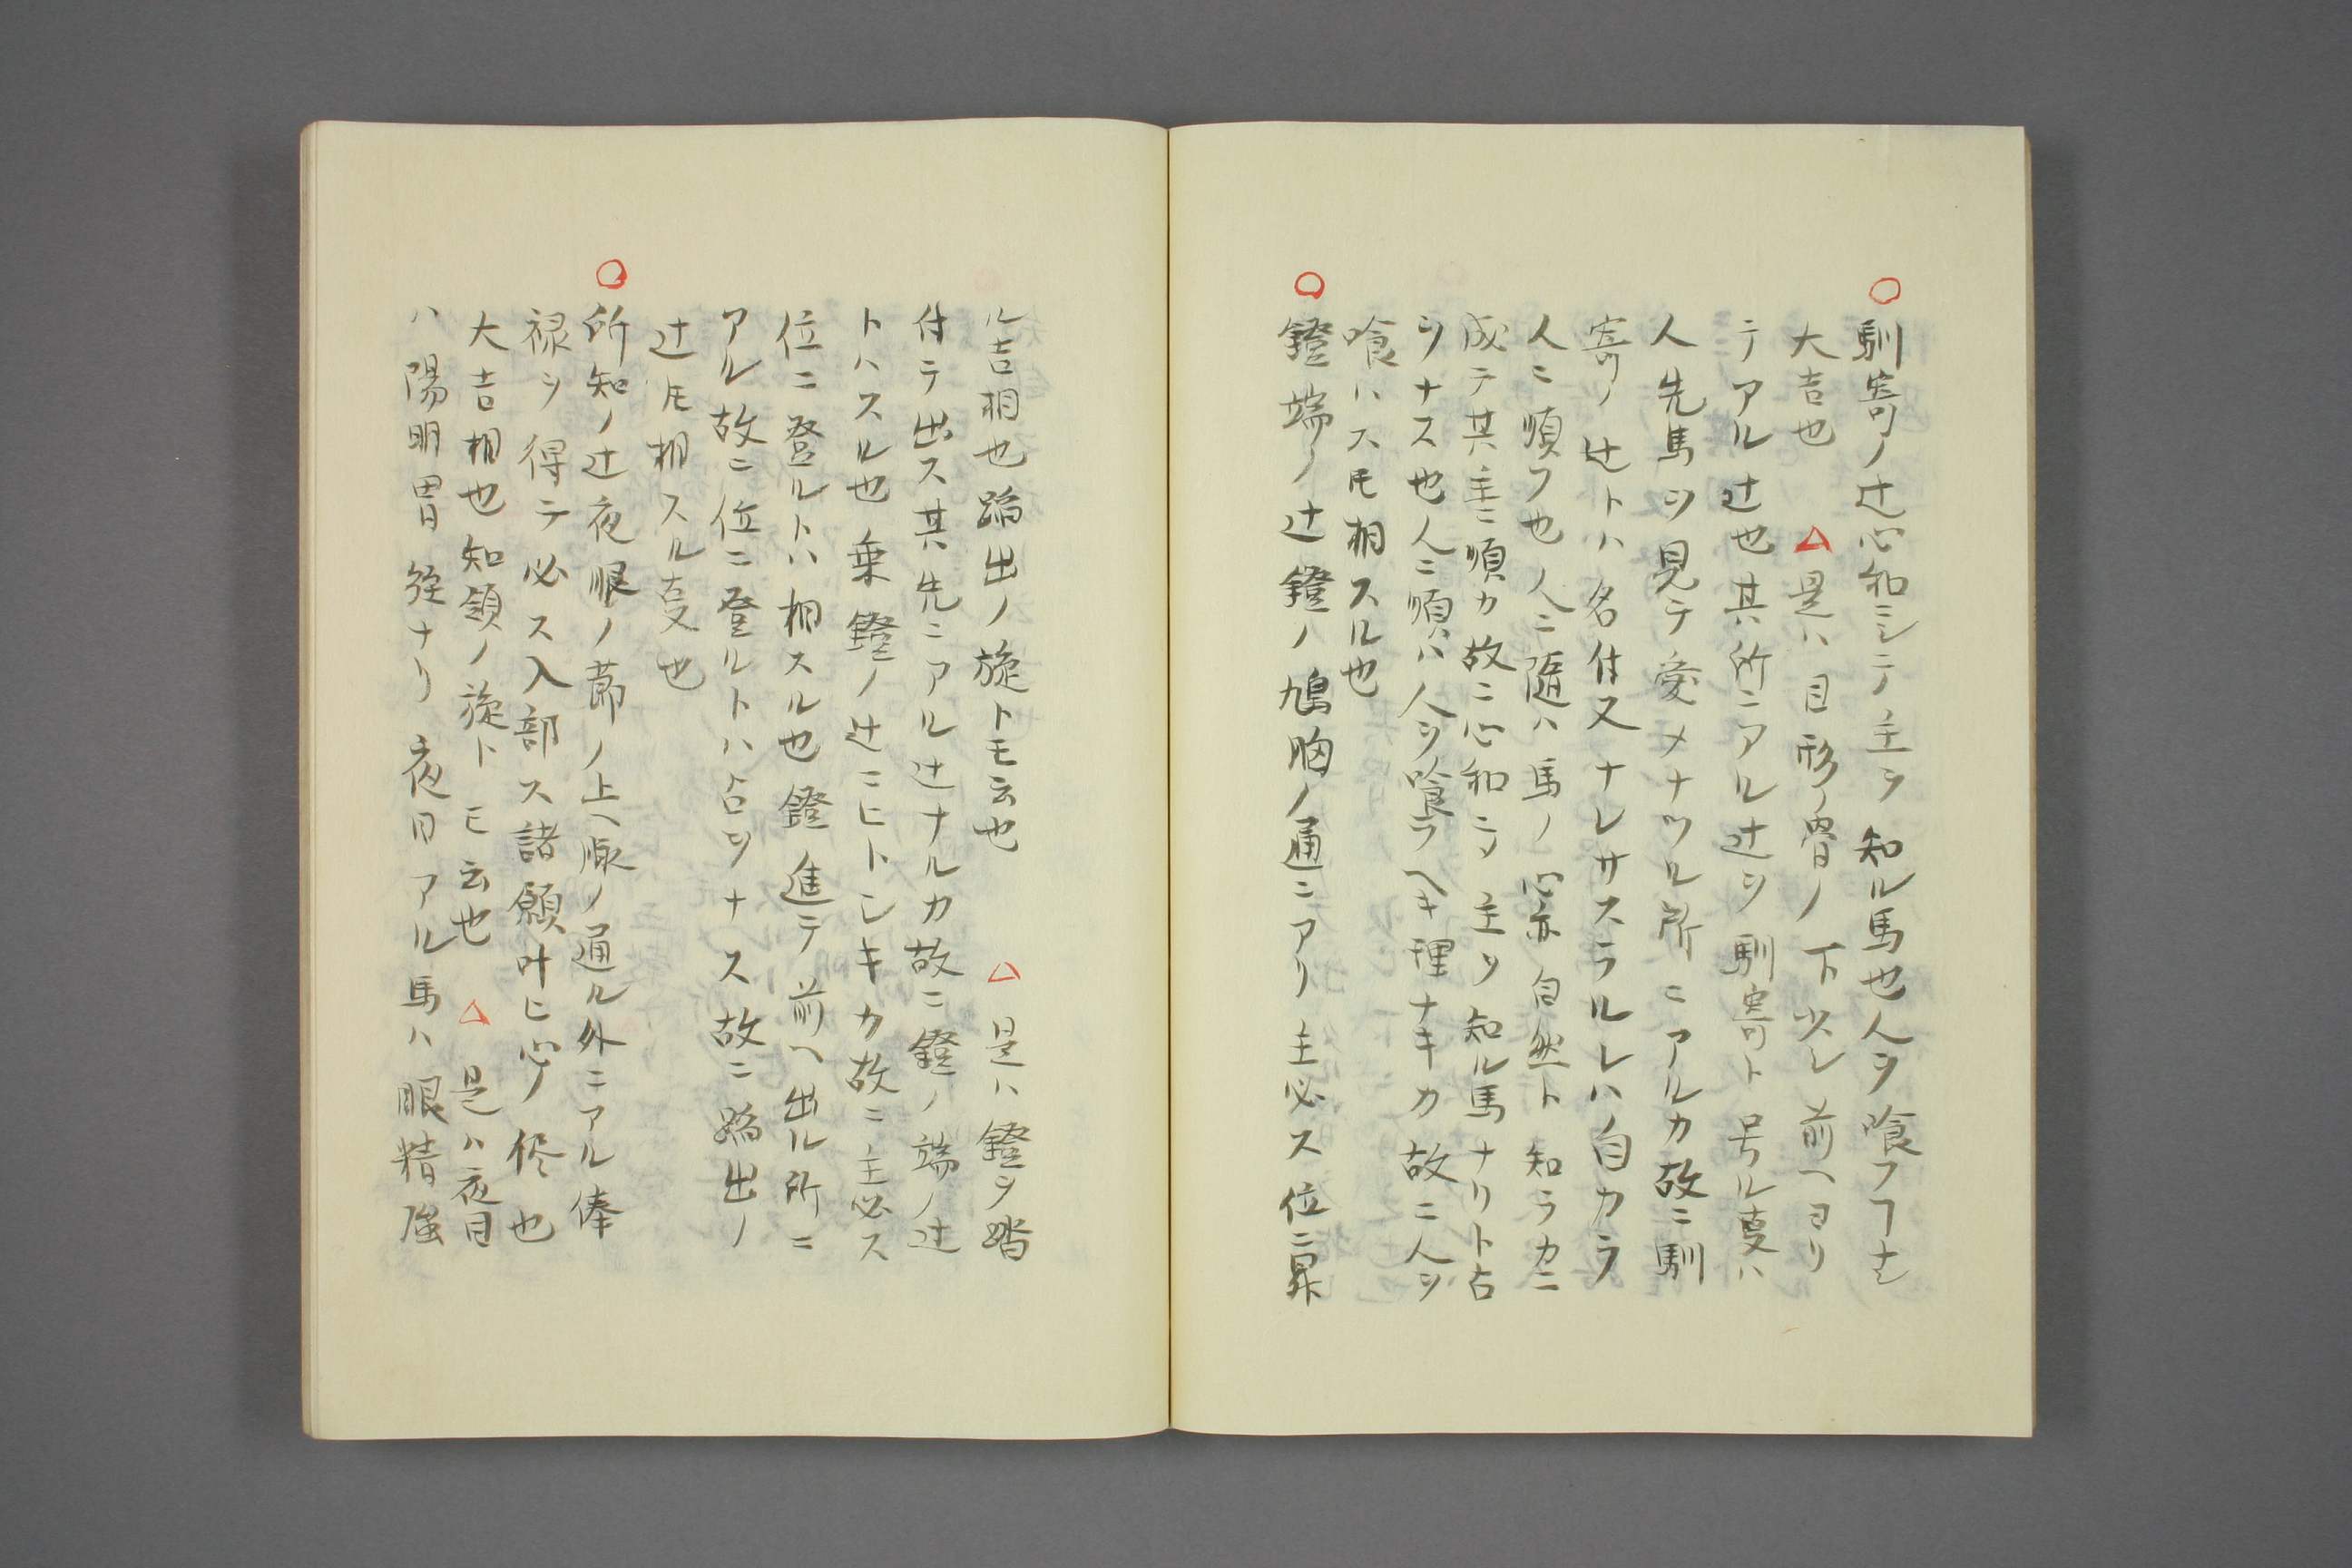 ○馴寄ノ辻心和ニシテ主ヲ知ル馬也人ヲ喰フヿナシ
大吉也 △是ハ目形ノ骨ノ下少シ前ヘヨリ
テアル辻也其所ニアル辻ヲ馴寄ト号ル叓ハ
人先馬ヲ見テ愛メナツル所ニアルカ故ニ馴
寄ノ辻トハ名付又ナレサスラルレハ自カラ
人ニ順フ也人ニ随ハ馬ノ心亦自然ト知ラカニ
成テ其主ニ順カ故ニ心和ニシ主ヲ知ル馬ナリト占
ヲナス也人ニ順ハ人ヲ喰ラヘキ理ナキカ故ニ人ヲ
喰ハスㇳモ相スル也
○鐙端ノ辻鐙ノ鳩胸ノ通ニアリ主必ス位ニ昇
ル吉相也踊出ノ旋トモ云也 △是ハ鐙ヲ踏
付テ出ス其先ニアル辻ナルカ故ニ鐙ノ端ノ辻
トハスル也乗鐙ノ辻ニヒトシキカ故ニ主必ス
位ニ登ルトハ相スル也鐙進テ前ヘ出ル所ニ
アル故ニ位ニ登ルトハ占ヲナス故ニ踊出ノ
辻ㇳモ相スル叓也
○所知ノ辻夜眼ノ節ノ上ヘ脉ノ通ル外ニアル俸
禄ヲ得テ必ス入部ス諸願叶ヒ心ノ侭也
大吉相也知領ノ旋トモ云也 △是ハ夜目
ハ陽明胃経ナリ夜目アル馬ハ眼精強